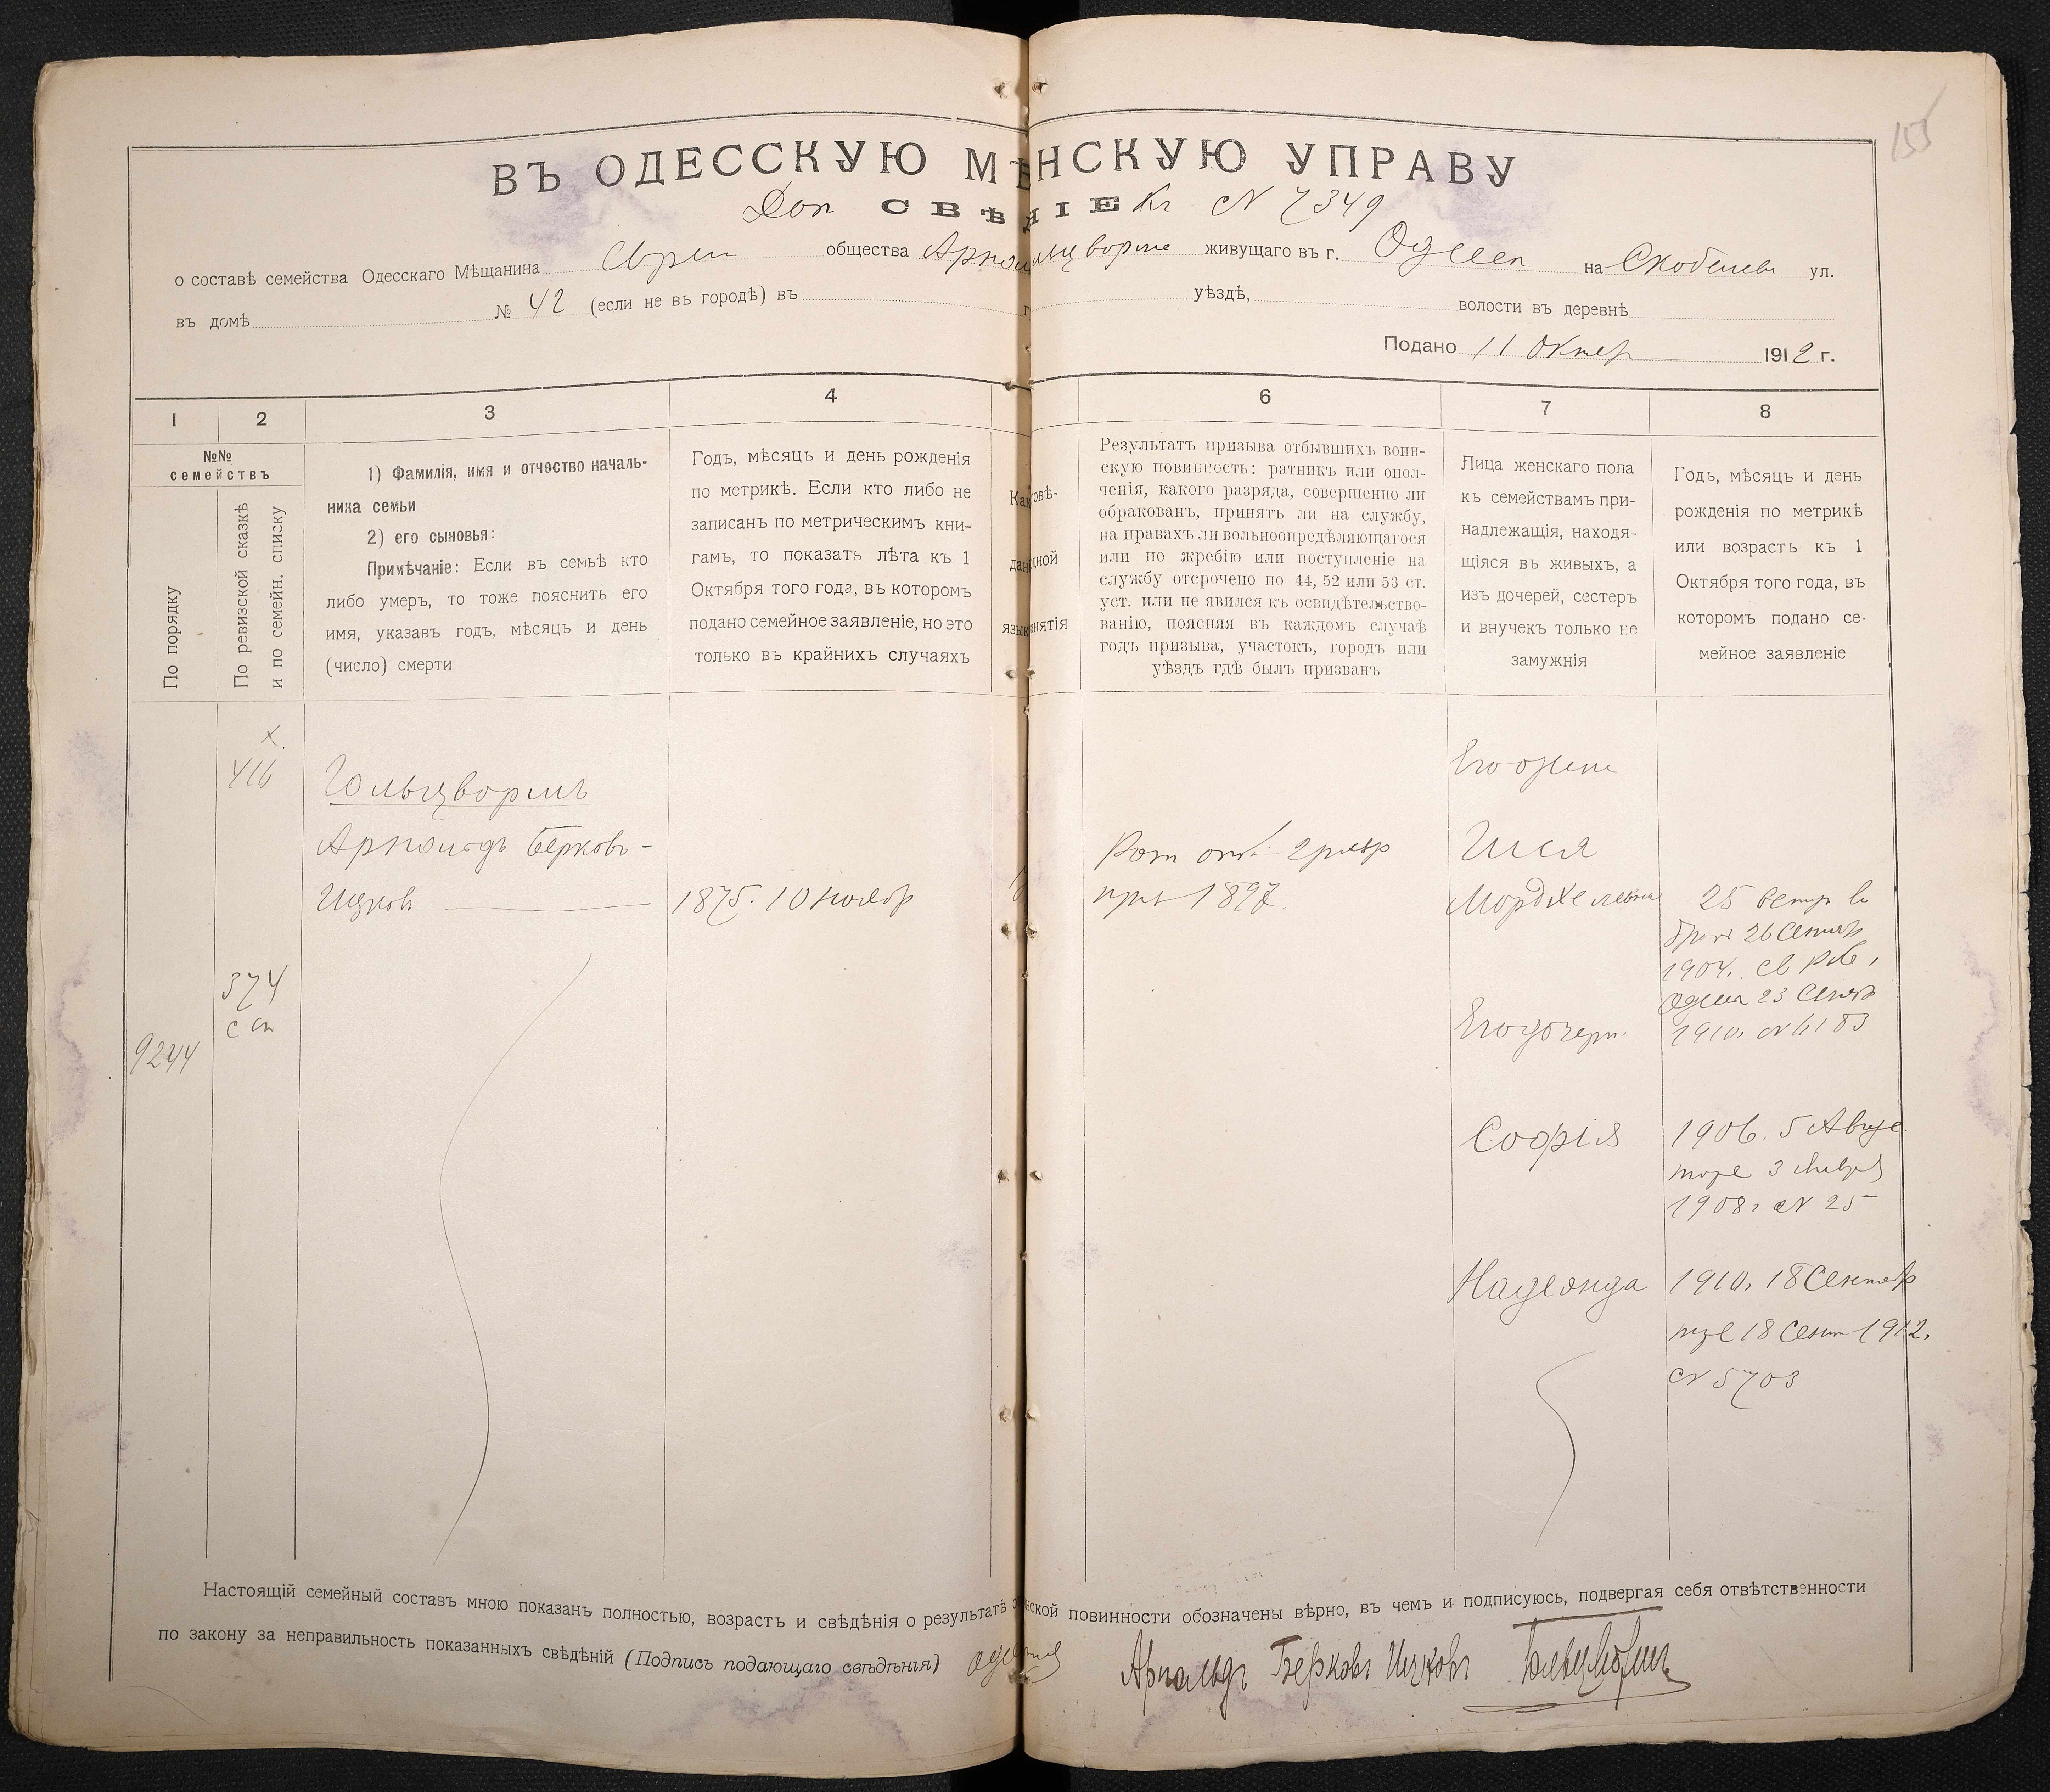 155
ВЪ ОДЕССКУЮ М НСКУЮ УПРАВУ
Доп СВѢ НІЕ Къ № 7349
о составѣ семейства Одесскаго Мѣщанина Евреи общества живущаго въ г. Одессѣ на Скобелева ул.
въ домѣ № 42 (если не въ городѣ) въ уѣздѣ, волости въ деревнѣ
Подано 11 Октяр 1912 г.
1 2 3 4 6 7 8
№№
семействъ
По порядку
По ревизской сказкѣ
и по семейн. списку
1) Фамилія, имя и отчество началь-
ника семьи
2) его сыновья:
Примѣчаніе: Если въ семьѣ кто
либо умеръ, то тоже пояснить его
имя, указавъ годъ, мѣсяцъ и день
(число) смерти
Годъ, мѣсяцъ и день рожденія
по метрикѣ. Если кто либо не
записанъ по метрическимъ кни-
гамъ, то показать лѣта къ 1
Октября того года, въ которомъ
подано семейное заявленіе, но это
только въ крайнихъ случаяхъ
Результатъ призыва отбывшихъ воин-
скую повинность: ратникъ или опол-
ченія, какого разряда, совершенно ли
обракованъ, принятъ ли на службу,
на правахъ ли вольноопредѣляющагося
или по жребію или поступленіе на
службу отсрочено по 44, 52 или 53 ст.
уст. или не явился къ освидѣтельство-
ванію, поясняя въ каждомъ случаѣ
годъ призыва, участокъ, городъ или
уѣздъ гдѣ былъ призванъ
Лица женскаго пола
къ семействамъ при-
надлежащія, находя-
щіяся въ живыхъ, а
изъ дочерей, сестеръ
и внучекъ только не
замужнія
Годъ, мѣсяцъ и день
рожденія по метрикѣ
или возрастъ къ 1
Октября того года, въ
которомъ подано се-
мейное заявленіе
х.
416
Гольцвормъ
Арнольдъ Берковъ-
Ицковъ 1875. 10 Ноябр
374
9244
Рат опол 2 разр
приз 1897.
Его жена
Шея
25
брак 26 Сентяр
1904.
Одесса 23 Сентяб
1910. № 6183
Его дочери
Софія
1906. 5 Август
3 Января
1908 г № 25
Надежда
1910. 18 Сентяр
18 Сент 1912.
№ 5703
Настоящій семейный составъ мною показанъ полностью, возрастъ и свѣдѣнія о результатѣ о нской повинности обозначены вѣрно, въ чемъ и подписуюсь, подвергая себя отвѣтственности
по закону за неправильность показанныхъ свѣдѣній (Подпись подающаго свѣдѣнія) Арнольдъ Берковъ Ицковъ Гольцвормъ